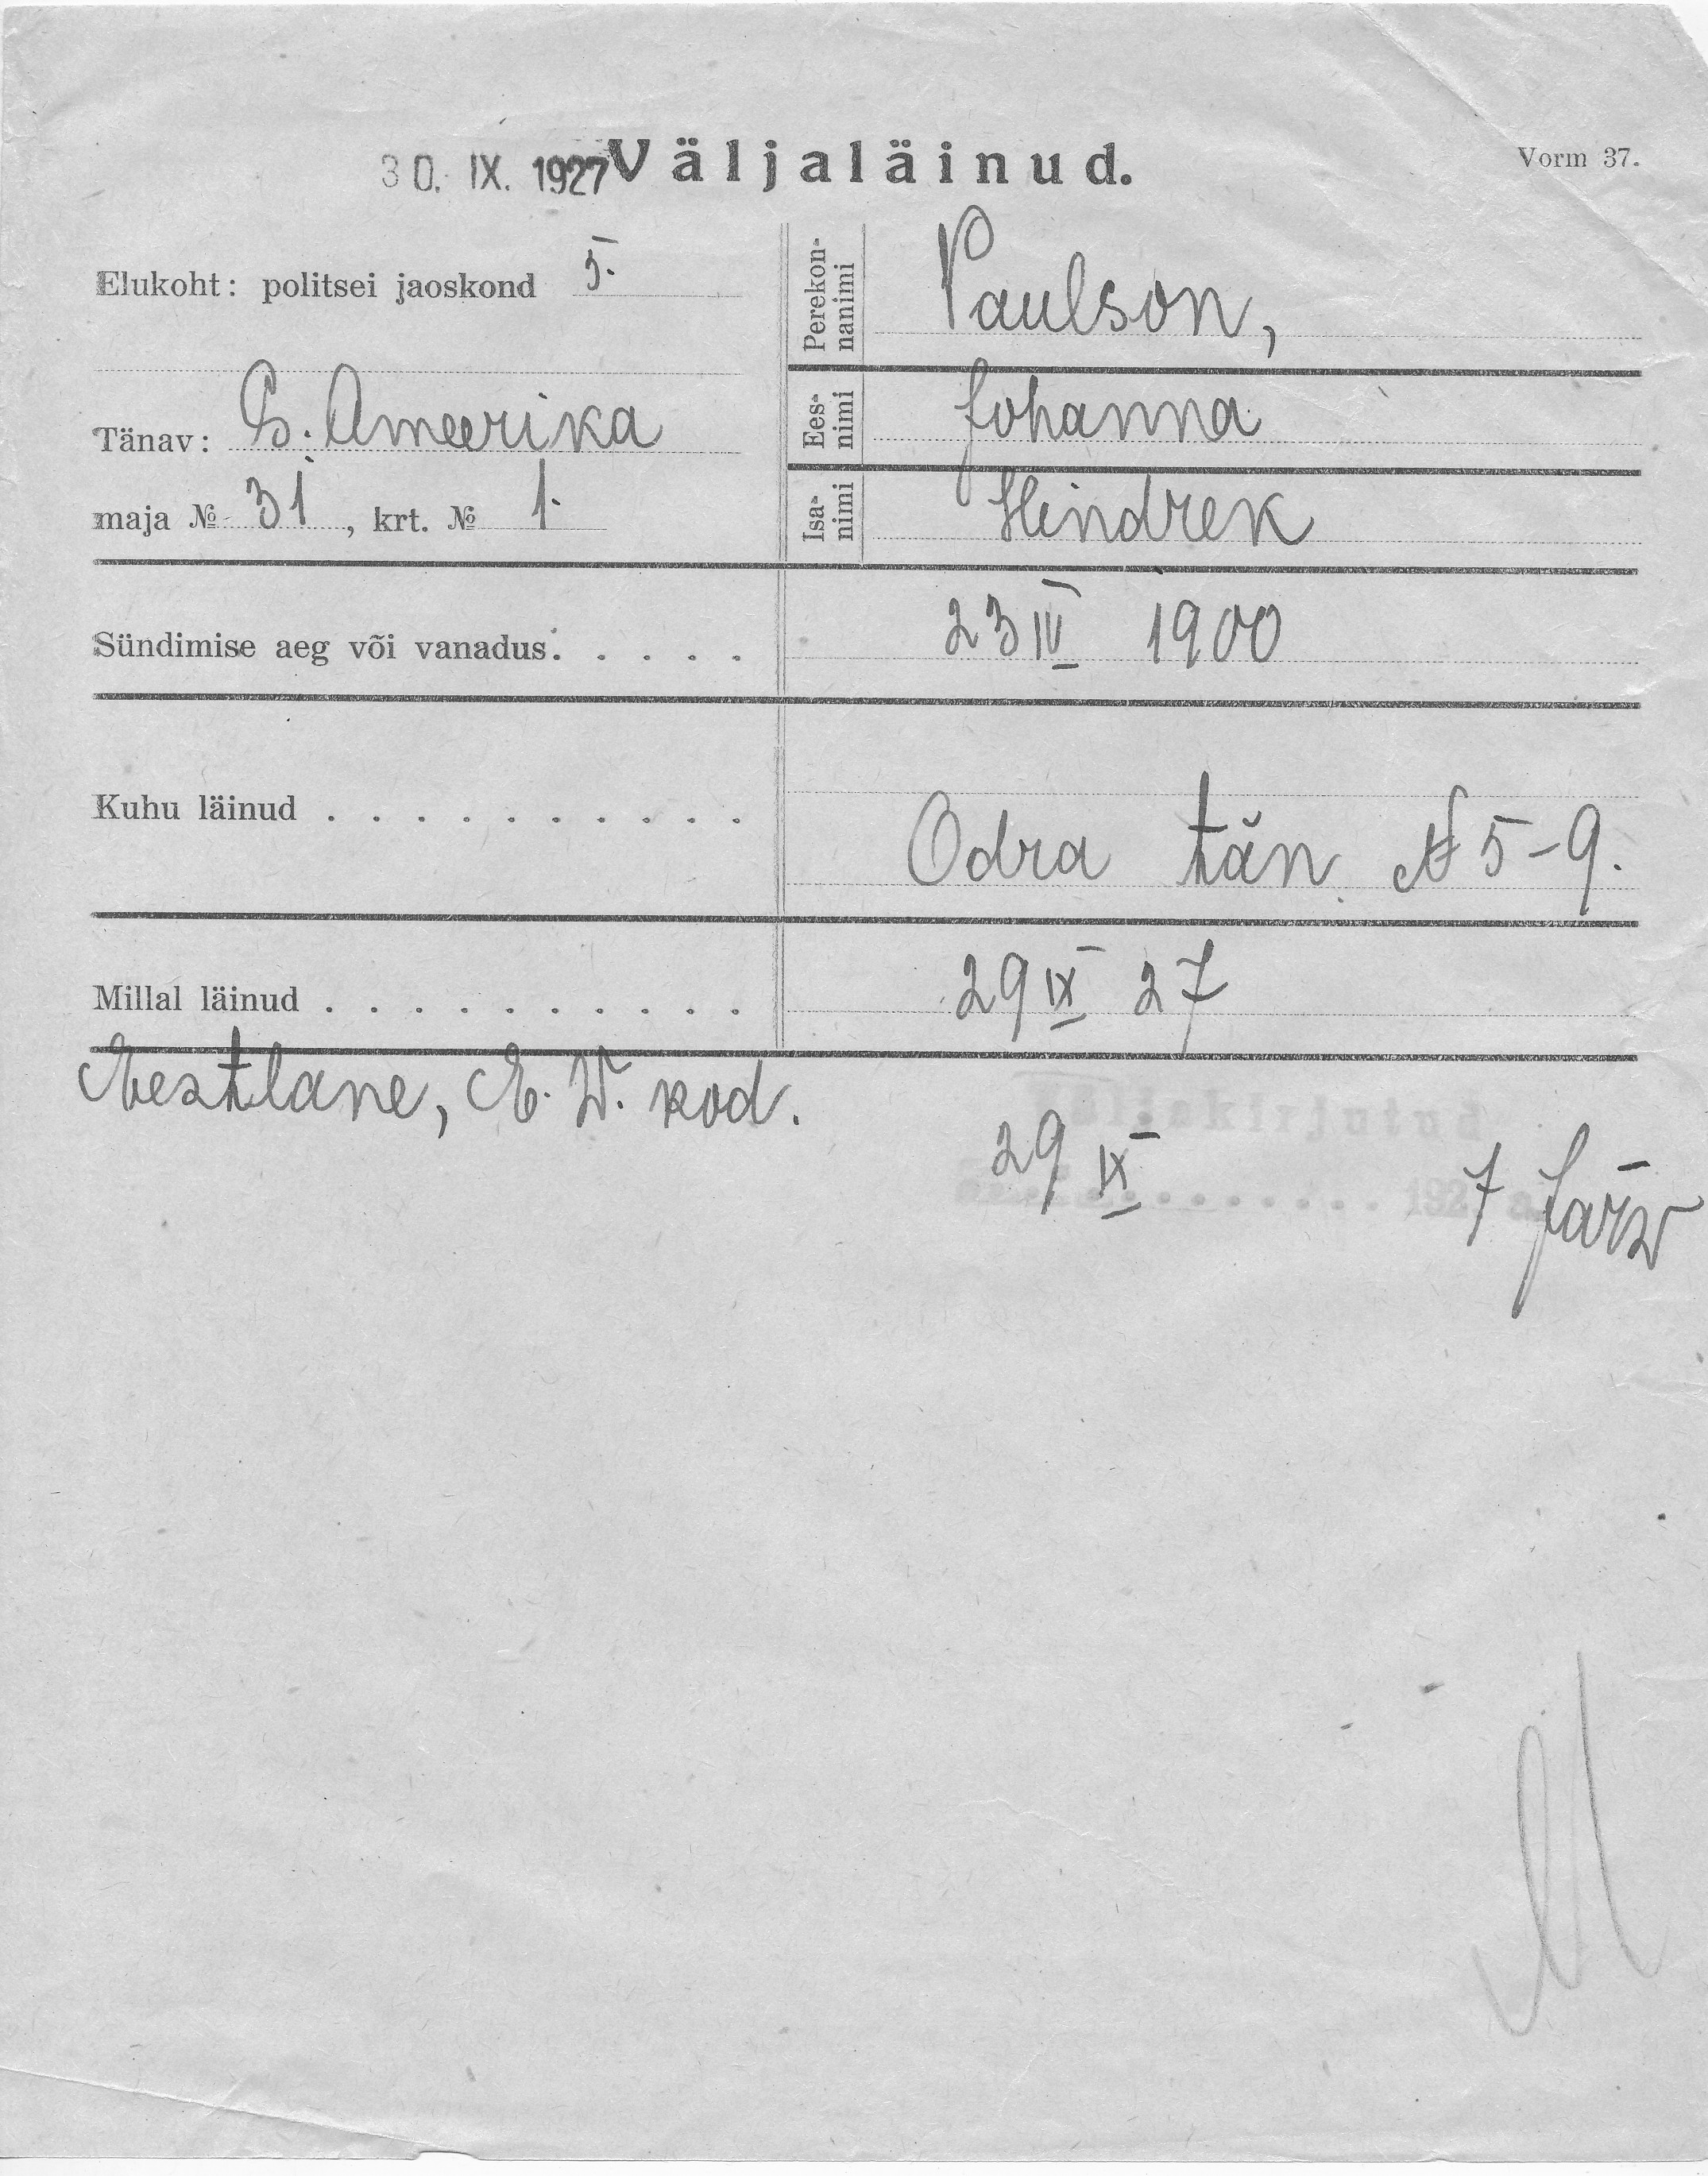 30. IX. 1927 Väljaläinud.
Vorm 37.
Elukoht: politsei jaoskond 5.
Tänav: S. Ameerika
maja № 31, krt. № 1.
Perekon-
nanimi
Paulson,
Ees-
nimi
Johanna
Isa-
nimi
Hindrek
Sündimise aeg või vanadus: . . . . .
23 IV 1900
Kuhu läinud . . . . . . . . . .
Odra tän. № 5-9.
Millal läinud . . . . . . . . . .
29 IX 27
Eestlane, E. W. kod.
Väljakirjutud
29 IX . . . . . . . . 1927 a. Järw